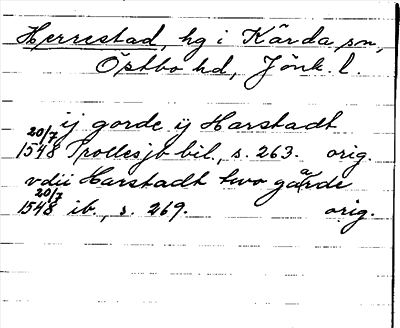 Herrestad, hg i Kärda sn,
Östbo hd, Jönk. l.
ij gorde ij Harstadt
20/7 1548 Trollesjö bil., s. 263. orig.
vdii Harstadt two gaarde
20/7 1548 ib., s. 269. orig.